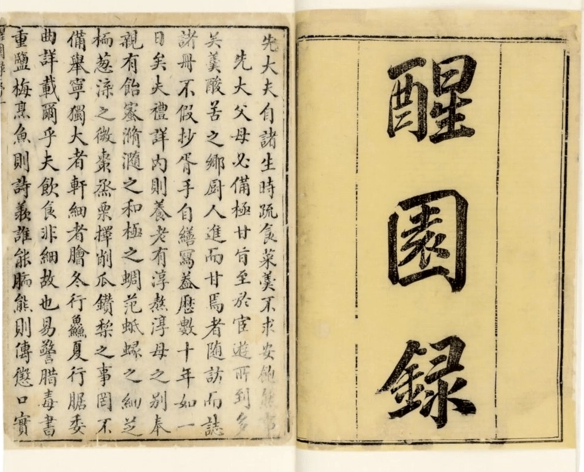 醒
園
録
先大夫自諸生時疏食菜羹不求安飽然事
先大父母必備極甘旨至於宦遊所到多
吳羹酸苦之鄉厨人進而甘焉者隨訪而誌
諸冊不假抄胥手自繕寫葢歷數十年如一
日矣夫禮詳內則養老有淳熬淳母之别奉
親有飴蜜滫瀡之和極之蜩范蚳蝝之細芝
栭葱渫之微棗烝栗擇削瓜鑽梨之事罔不
備舉寧獨大者軒細者膾冬行鱻夏行腒委
曲詳載爾乎夫飲食非細故也易警腊毒書
重鹽梅烹魚則詩羨誰能胹熊則傳懲口實